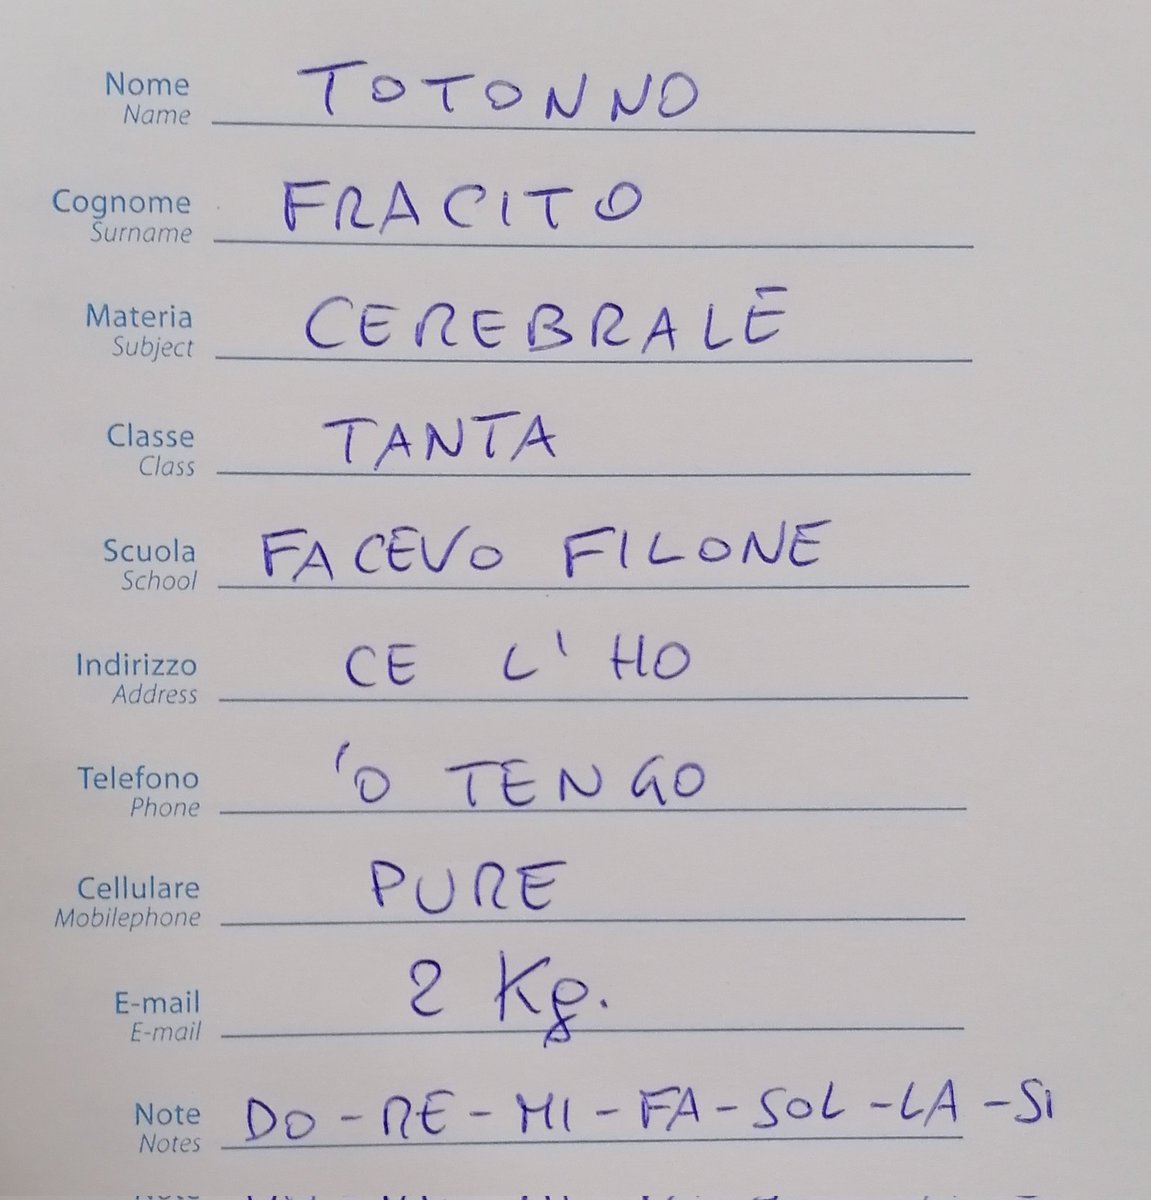 Nome TOTONNO
Name
Cognome FRACITO
Surname
Materia CEREBRALE
Subject
Classe TANTA
Class
Scuola FACEVO FILONE
School
Indirizzo CE L'HO
Address
Telefono 'O TENGO
Phone
Cellulare PURE
Mobilephone
E-mail 2 Kg.
E-mail
Note DO - RE - MI - FA - SOL - LA - SI
Notes